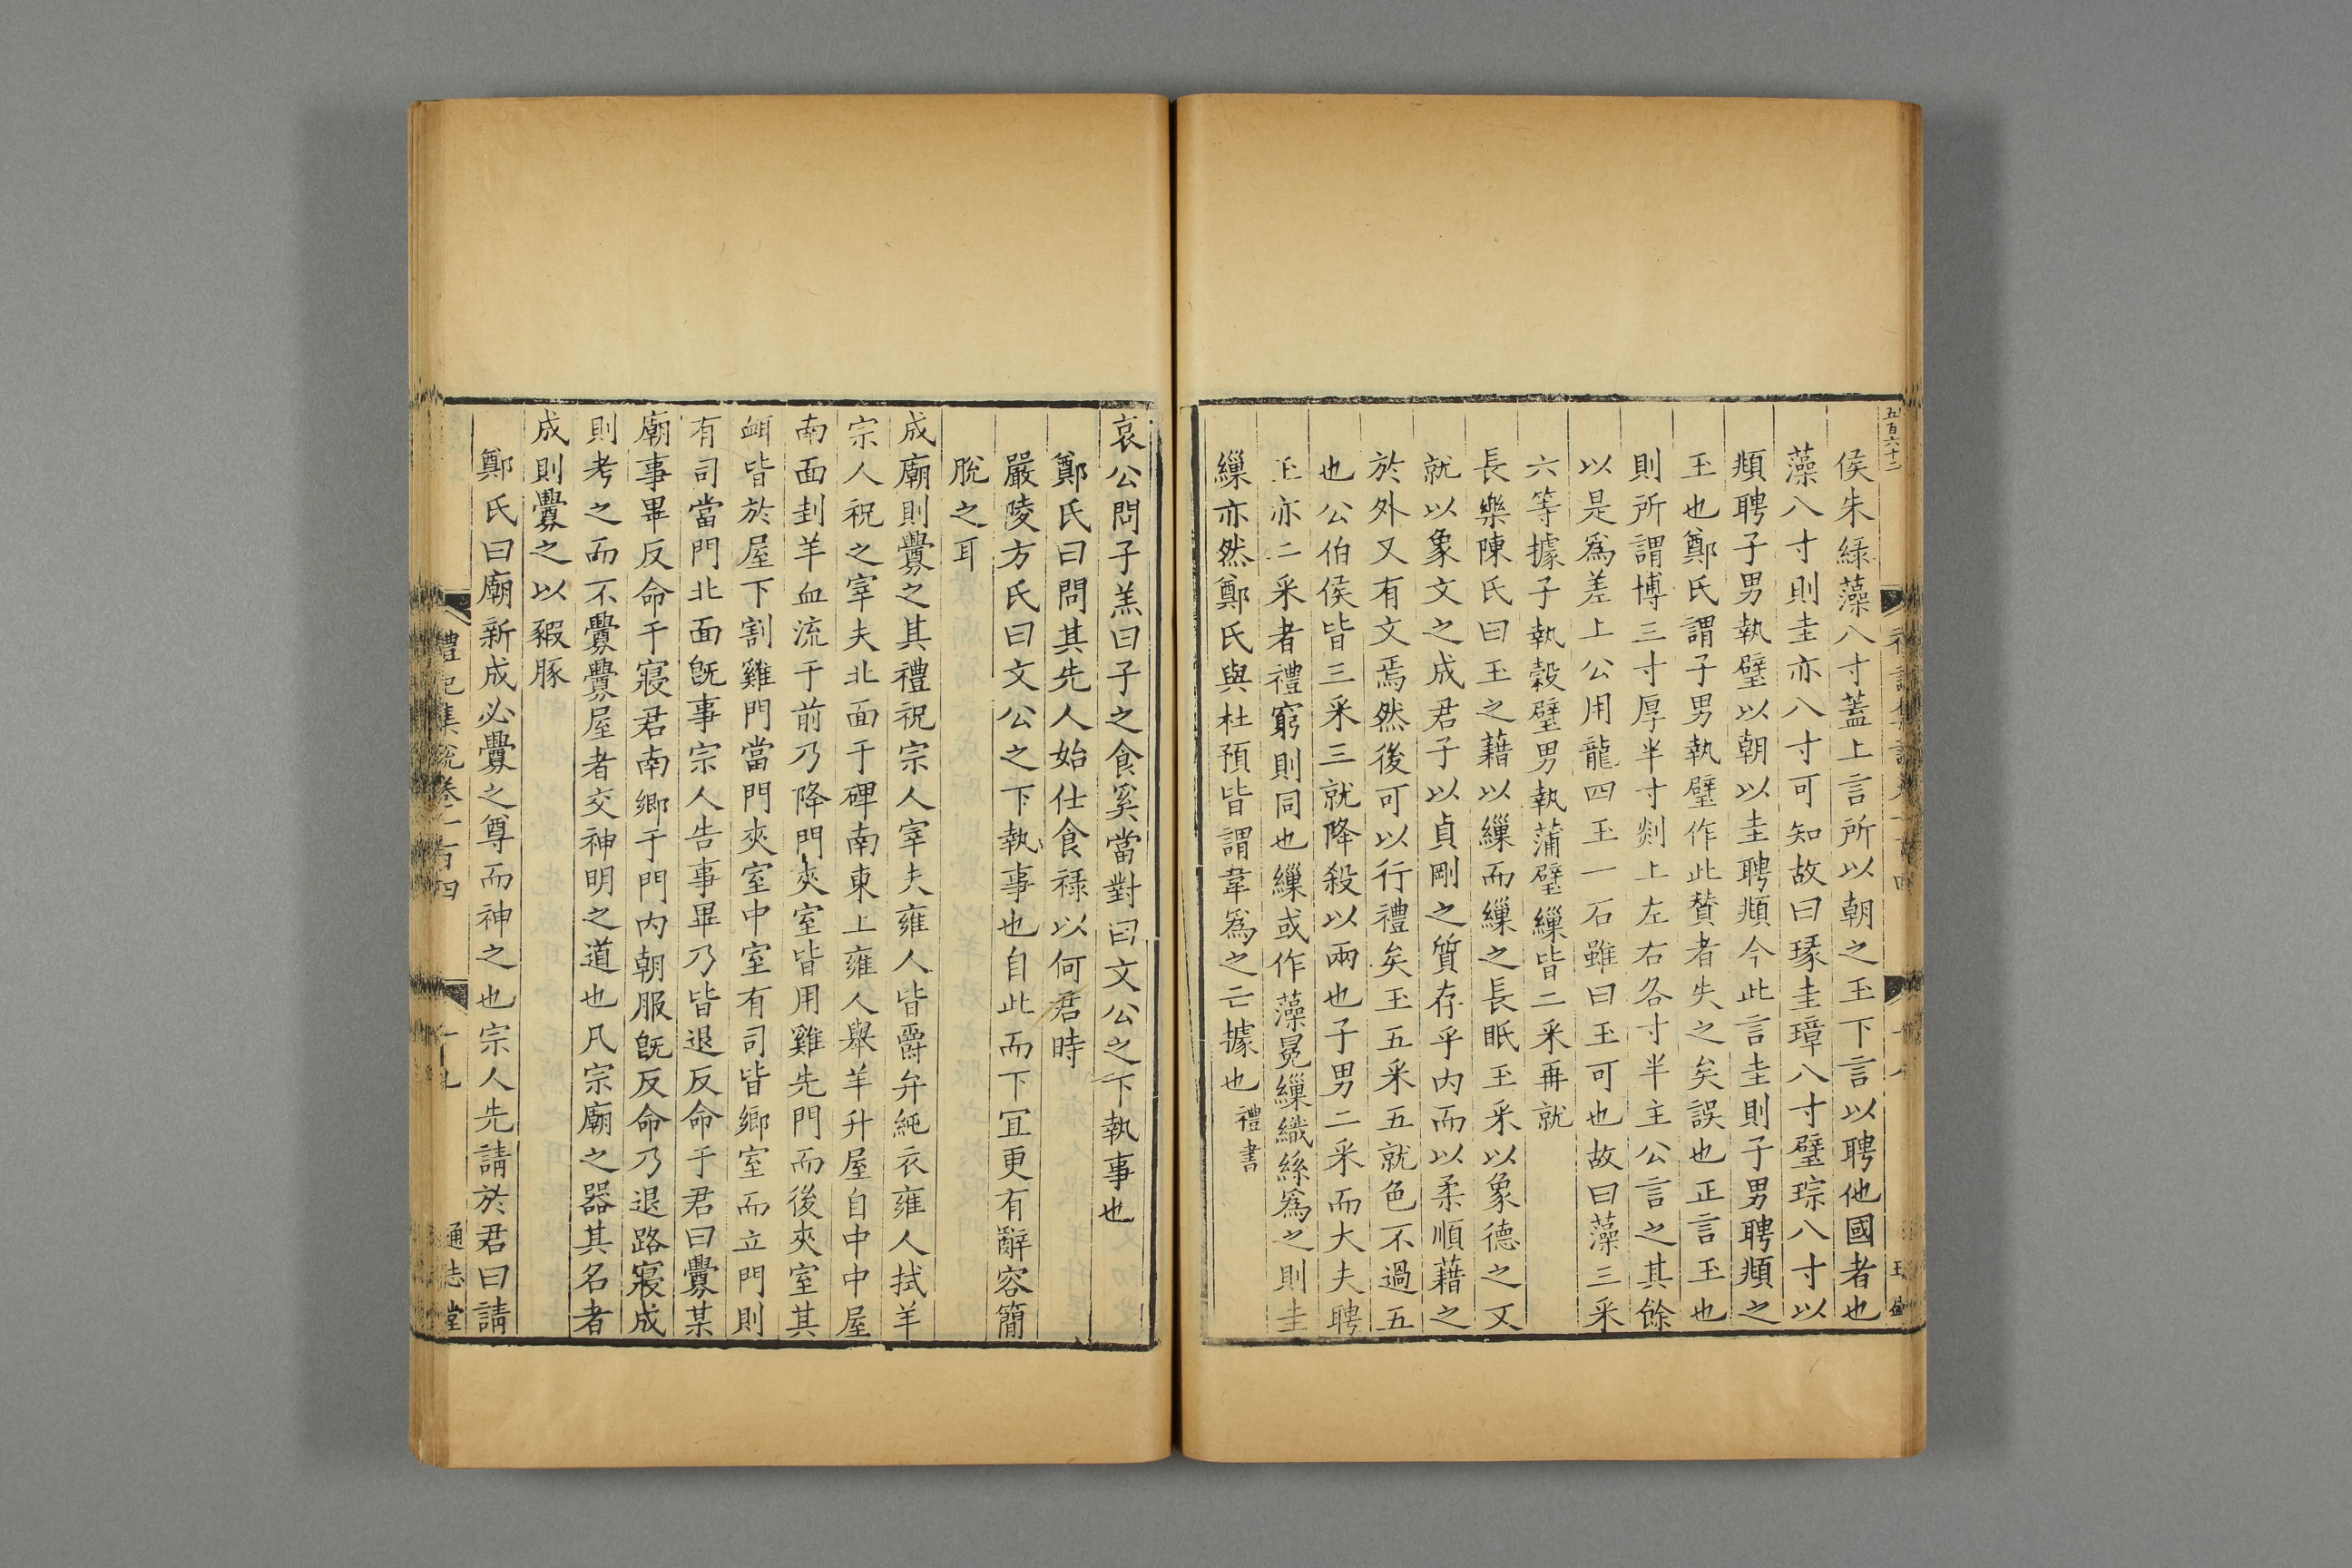 五百六十二
侯朱緑藻八寸蓋上言所以朝之玉下言以聘他國者也
藻八寸則圭亦八寸可知故曰瑑圭璋八寸璧琮八寸以
頫聘子男執璧以朝以圭聘頫今此言圭則子男聘頫之
玉也鄭氏謂子男執璧作此贊者失之矣誤也正言玉也
則所謂博三寸厚半寸剡上左右各寸半主公言之其餘
以是爲差上公用龍四玉一石雖曰玉可也故曰藻三采
六等據子執穀璧男執蒲璧繅皆二采再就
長樂陳氏曰玉之藉以繅而繅之長眂玉采以象德之文
就以象文之成君子以貞剛之質存乎内而以柔順藉之
於外又有文焉然後可以行禮矣玉五采五就色不過五
也公伯侯皆三采三就降殺以兩也子男二采而大夫聘
玉亦二采者禮窮則同也繅或作藻冕繅織絲爲之則圭
繅亦然鄭氏與杜預皆謂韋爲之亡據也禮書
哀公問子羔曰子之食奚當對曰文公之下執事也
鄭氏曰問其先人始仕食祿以何君時
嚴陵方氏曰文公之下執事也自此而下冝更有辭容簡
脫之耳
成廟則釁之其禮祝宗人宰夫雍人皆爵弁純衣雍人拭羊
宗人祝之宰夫北面于碑南東上雍人舉羊升屋自中中屋
南面刲羊血流于前乃降門夾室皆用雞先門而後夾室其
衈皆於屋下割雞門當門夾室中室有司皆鄉室而立門則
有司當門北面旣事宗人告事畢乃皆退反命于君曰釁某
廟事畢反命于寢君南鄉于門内朝服旣反命乃退路寢成
則考之而不釁釁屋者交神明之道也凡宗廟之器其名者
成則釁之以豭豚
鄭氏曰廟新成必釁之尊而神之也宗人先請於君曰請
禮記集說卷一百四
十九
通志堂